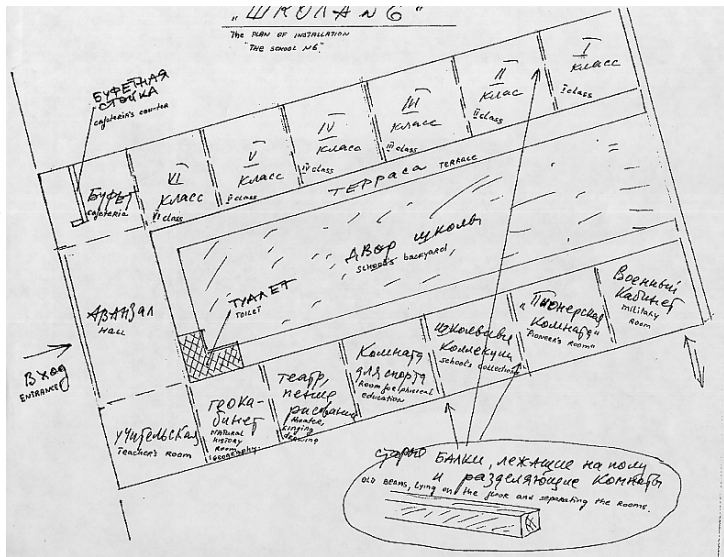 "ШКОЛА N 6"
The PLAN OF INSTALLATION
"THE SCHOOL N6"
БУФЕТНАЯ
СТОЙКА
cafeteria's counter
БУФЕТ
cafeteria
VI
КЛАСС
VI class
V
КЛАСС
V class
IV
КЛАСС
IV class
III
КЛАСС
III class
II
КЛАС
II class
I
КЛАСС
I class
ТЕРРАСА TERRACE
ДВОР ШКОЛЫ
SCHOOL'S BACKYARD
ТУАЛЕТ
TOILET
АВАНЗАЛ
HALL
ВХОД
ENTRANCE
УЧИТЕЛЬСКАЯ
TEACHER'S ROOM
ГЕОКА-
БИНЕТ
NATURAL
HISTORY
ROOM
(GEOGRAPHY)
ТЕАТР,
ПЕНИЕ
РИСОВАНИЕ
theater,
singing
drawing
КОМНАТА
ДЛЯ СПОРТА
Room for physical
education
ШКОЛЬНЫЕ
КОЛЛЕКЦИИ
SCHOOL'S COLLECTIONS
"ПИОНЕРСКАЯ
КОМНАТА"
"PIONEER'S ROOM"
ВОЕННЫЙ
КАБИНЕТ
MILITARY
ROOM
СТАРЫЕ БАЛКИ, ЛЕЖАЩИЕ НА ПОЛУ
И РАЗДЕЛЯЮЩИЕ КОМНАТЫ
OLD BEAMS, LYING ON THE FLOOR AND SEPARATING THE ROOMS.